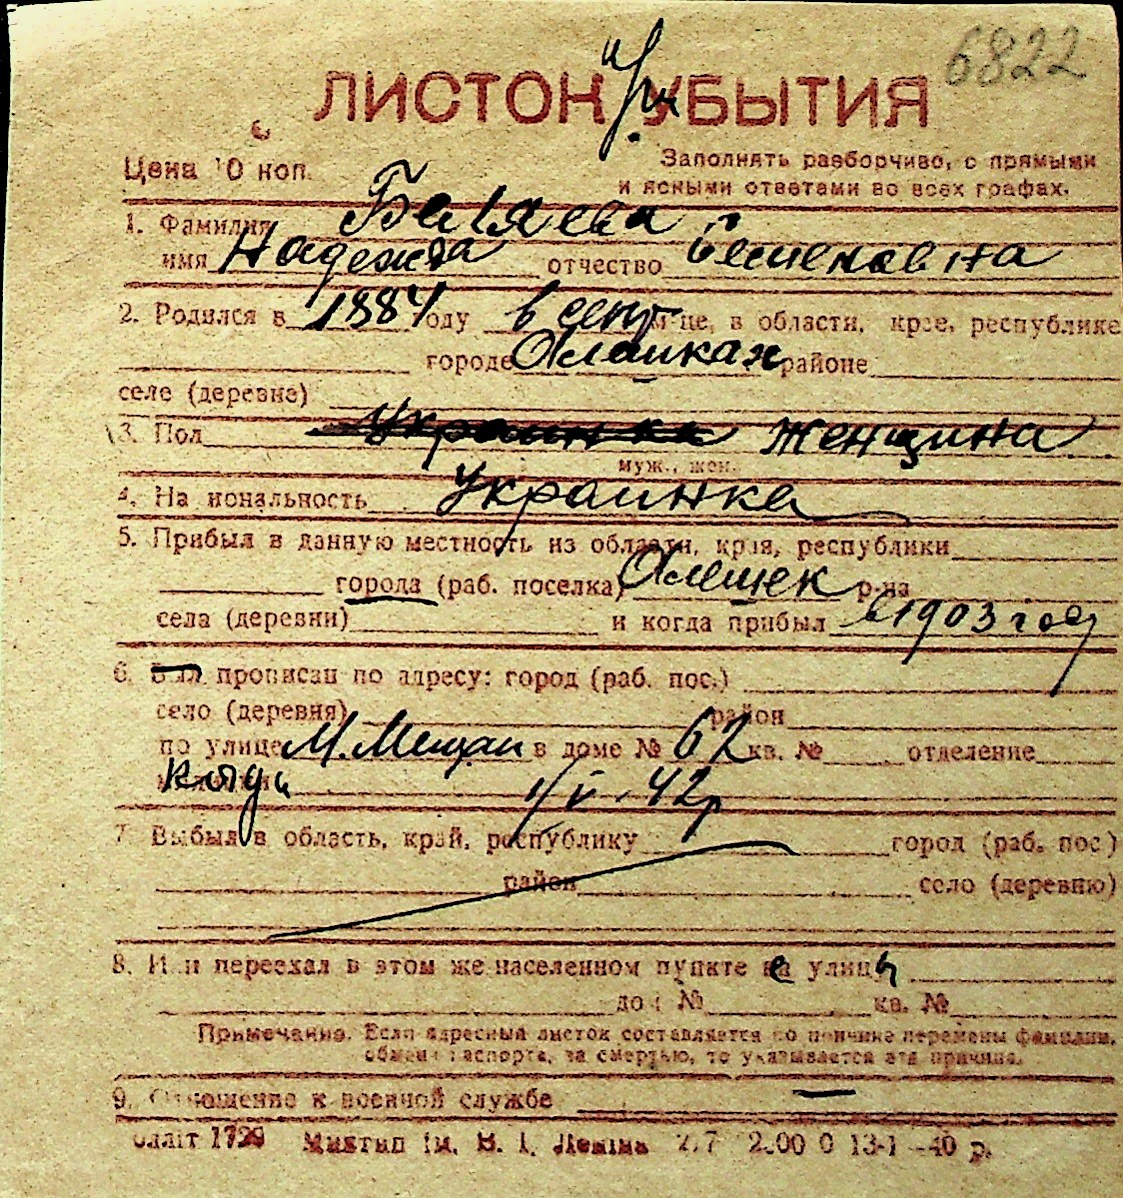 6822
ЛИСТОК УБЫТИЯ
Цена 10 коп.
Заполнять разборчиво, с прямыми
и ясными ответами во всех графах.
1. Фамилия Беляева
имя Надежда отчество Семеновна
2. Родился в 1884 году в сент м-це, в области, крае, республике
городе Олешках районе
селе (деревне)
3. Пол Украинка Женщина
муж., жен.
4. Национальность Украинка
5. Прибыл в данную местность из области, края, республики
города (раб. поселка) Олешек р-на
села (деревни) и когда прибыл в 1903 году
6. Был прописан по адресу: город (раб. пос.)
село (деревня) район
по улице М. Мещан в доме № 62 кв. № отделение
милиции
1/V. 42 р
7. Выбыл в область, край, республику город (раб. пос.)
район село (деревню)
8. Или переехал в этом же населенном пункте на улицу
дом № кв. №
Примечание. Если адресный листок составляется по причине перемены фамилии,
обмена паспорта, за смертью, то указывается эта причина.
9. Отношение к военной службе —
Облліт 1729 Миктип ім. В. І. Леніна 2.00 0 13-1 -40 р.